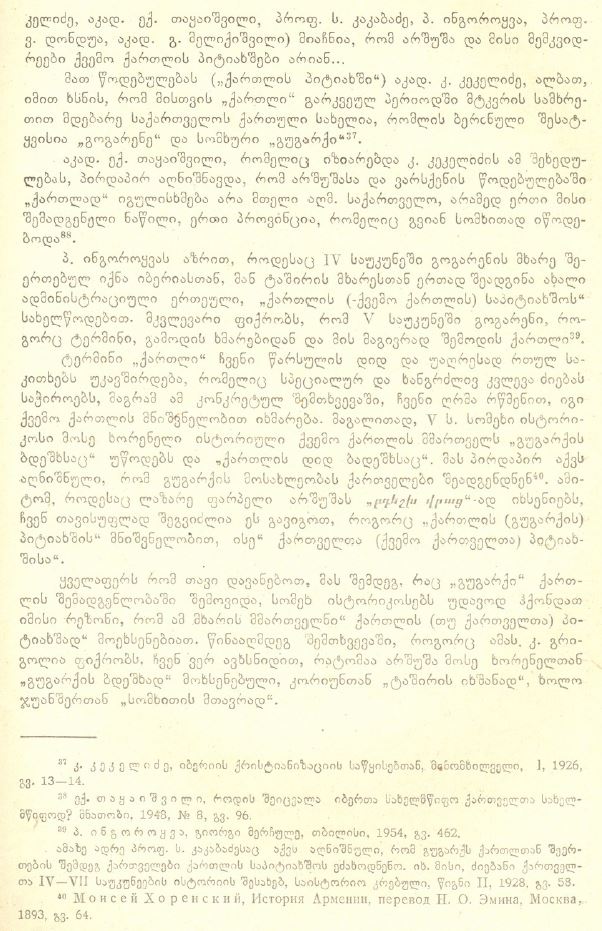 კელიძე, აკად. ექ. თაყაიშვილი, პროფ. ს. კაკაბაძე, პ. ინგოროყვა, პროფ.
ვ. დონდუა, აკად. გ. მელიქიშვილი) მიაჩნია, რომ არშუშა და მისი მემკვიდ-
რეები ქვემო ქართლის პიტიახშები არიან...
მათ წოდებულებას („ქართლის პიტიახში“) აკად. კ. კეკელიძე, ალბათ,
იმით ხსნის, რომ მისთვის „ქართლი“ გარკვეულ პერიოდში მტკვრის სამხრე-
თით მდებარე საქართველოს ქართული სახელია, რომლის ბერძნული შესატ-
ყვისია „გოგარენე“ და სომხური „გუგარქი“³⁷.
აკად. ექ. თაყაიშვილი, რომელიც იზიარებდა კ. კეკელიძის ამ შეხედუ-
ლებას, პირდაპირ აღნიშნავდა, რომ არშუშასა და ვარსქენის წოდებულებაში
„ქართლად“ იგულისხმება არა მთელი აღმ. საქართველო, არამედ ერთი მისი
შემადგენელი ნაწილი, ერთი პროვინცია, რომელიც გვიან სომხითად იწოდე-
ბოდა³⁸.
პ. ინგოროყვას აზრით, როდესაც IV საუკუნეში გოგარენის მხარე შე-
ერთებულ იქნა იბერიასთან, მან ტაშირის მხარესთან ერთად შეადგინა ახალი
ადმინისტრაციული ერთეული, „ქართლის (-ქვემო ქართლის) საპიტიახშოს“
სახელწოდებით. მკვლევარი ფიქრობს, რომ V საუკუნეში გოგარენი, რო-
გორც ტერმინი, გამოდის ხმარებიდან და მის მაგივრად შემოდის ქართლი³⁹.
ტერმინი „ქართლი“ ჩვენი წარსულის დიდ და უაღრესად რთულ სა-
კითხებს უკავშირდება, რომელიც სპეციალურ და ხანგრძლივ კვლევა ძიებას
საჭიროებს, მაგრამ ამ კონკრეტულ შემთხვევაში, ჩვენი ღრმა რწმენით, იგი
ქვემო ქართლის მნიშვნელობით იხმარება. მაგალითად, V ს. სომეხი ისტორი-
კოსი მოსე ხორენელი ისტორიული ქვემო ქართლის მმართველს „გუგარქის
ბდეშხსაც“ უწოდებს და „ქართლის დიდ ბადეშხსაც“. მას პირდაპირ აქვს
აღნიშნული, რომ გუგარქის მოსახლეობას ქართველები შეადგენდნენ⁴⁰. ამი-
ტომ, როდესაც ლაზარე ფარპელი არშუშას „բդեշխ վրաց“-ად იხსენიებს,
ჩვენ თავისუფლად შეგვიძლია ეს გავიგოთ, როგორც „ქართლის (გუგარქის)
პიტიახშის“ მნიშვნელობით, ისე“ ქართველთა (ქვემო ქართველთა) პიტიახ-
შისა“.
ყველაფერს რომ თავი დავანებოთ, მას შემდეგ, რაც „გუგარქი“ ქართ-
ლის შემადგენლობაში შემოვიდა, სომეხ ისტორიკოსებს უდავოდ ჰქონდათ
იმისი რეზონი, რომ ამ მხარის მმართველნი“ ქართლის (თუ ქართველთა) პი-
ტიახშად“ მოეხსენებიათ. წინააღმდეგ შემთხვევაში, როგორც ამას. კ. გრი-
გოლია ფიქრობს, ჩვენ ვერ ავხსნიდით, რატომაა არშუშა მოსე ხორენელთან
„გუგარქის ბდეშხად“ მოხსენებული, კორიუნთან „ტაშირის იხშანად“, ხოლო
ჯუანშერთან „სომხითის მთავრად“.
³⁷ კ. კეკელიძე, იბერიის ქრისტიანიზაციის საწყისებთან, მიმომხილველი, I, 1926,
გვ. 13—14.
³⁸ ექ. თაყაიშვილი, როდის შეიცვალა იბერთა სახელმწიფო ქართველთა სახელ-
მწიფოდ? მნათობი, 1948, № 8, გვ. 96.
³⁹ პ. ინგოროყვა, გიორგი მერჩულე, თბილისი, 1954, გვ. 462.
ამაზე ადრე პროფ. ს. კაკაბაძესაც აქვს აღნიშნული, რომ გუგარქს ქართლთან შეერ-
თების შემდეგ ქართველები ქართლის საპიტიახშოს ეძახოდნენო. იხ. მისი, ძიებანი ქართველ-
თა IV—VII საუკუნეების ისტორიის შესახებ, საისტორიო კრებული, წიგნი II, 1928, გვ. 53.
⁴⁰ Моисей Хоренский, История Армении, перевод Н. О. Эмина, Москва,
1893, გვ. 64.